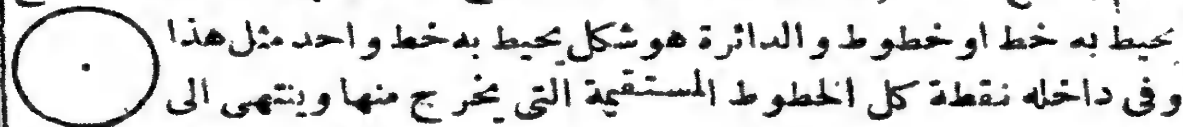 يحيط به خط او خطوط و الدائرة هو شكل يحيط به خط واحد مثل هذا
وفى داخله نقطة كل الخطوط المستقيمة التى يخرج منها وينتهى الى